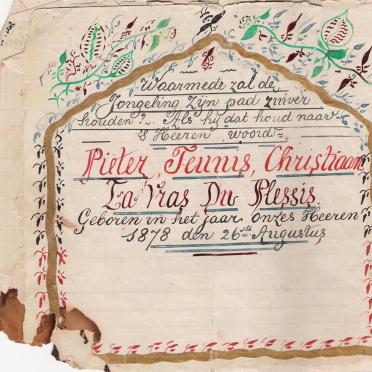 Waarmede zal de
Jongeling zijn pad zuiver
houden? Als hij dat houd naar
s' Heeren woord
Pieter, Teunis, Christiaan
La Vras Du Plessis.
Geboren in het jaar onzes Heeren
1878 den 26ste Augustus